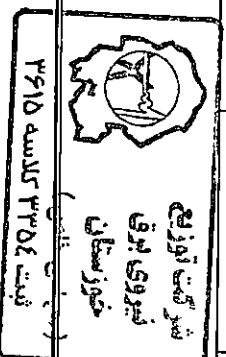 شرکت توزیع
نیروی برق
خوزستان
ثبت ۳۳۵٤ کلاسه ۳۶۱۵